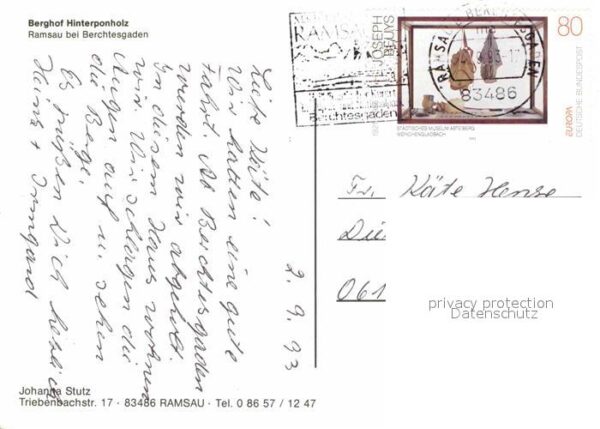 Berghof Hinterponholz
Ramsau bei Berchtesgaden
2. 9. 93
Liebe Käte!
Wir hatten eine gute
Fahrt. Ab Berchtesgaden
werden wir abgeholt.
In diesem Haus wohnen
wir. Wir schlagen die
Augen auf u. sehen
die Berge.
Es grüßen Dich herzlich
Heinz + Irmgard
Johanna Stutz
Triebenbachstr. 17 · 83486 RAMSAU · Tel. 0 86 57 / 12 47
RAMSAU
Berchtesgaden
RAMSAU B BERCHTESGADEN
83486
JOSEPH
BEUYS
80
STÄDTISCHES MUSEUM ABTEIBERG
MÖNCHENGLADBACH
EUROPA
DEUTSCHE BUNDESPOST
Fr. Käte Hense
Die
061
privacy protection
Datenschutz